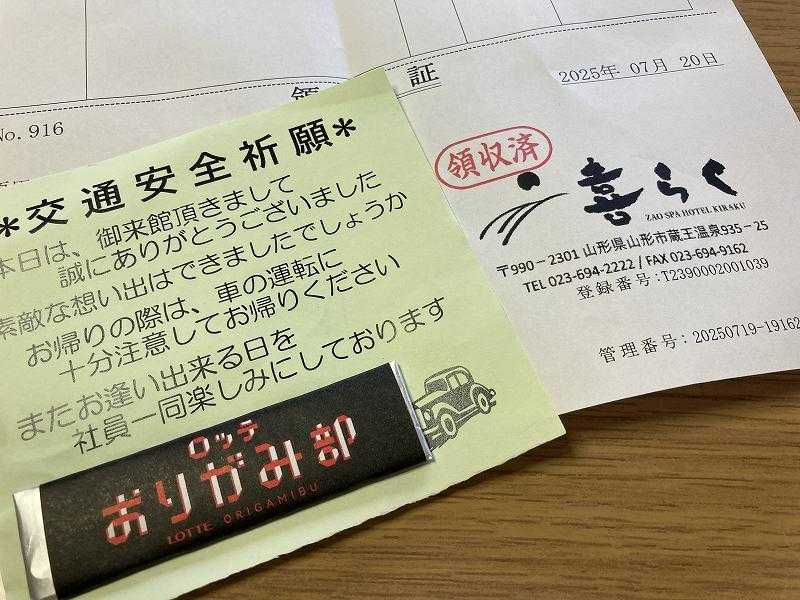 領 証
2025年 07月 20日
No. 916
領収済
喜らく
ZAO SPA HOTEL KIRAKU
〒990-2301 山形県山形市蔵王温泉935-25
TEL 023-694-2222 / FAX 023-694-9162
登録番号:T2390002001039
管理番号: 20250719-19162
*交通安全祈願*
本日は、御来館頂きまして
誠にありがとうございました
素敵な想い出はできましたでしょうか
お帰りの際は、車の運転に
十分注意してお帰りください
またお逢い出来る日を
社員一同楽しみにしております
ロッテ
おりがみ部
LOTTE ORIGAMIBU